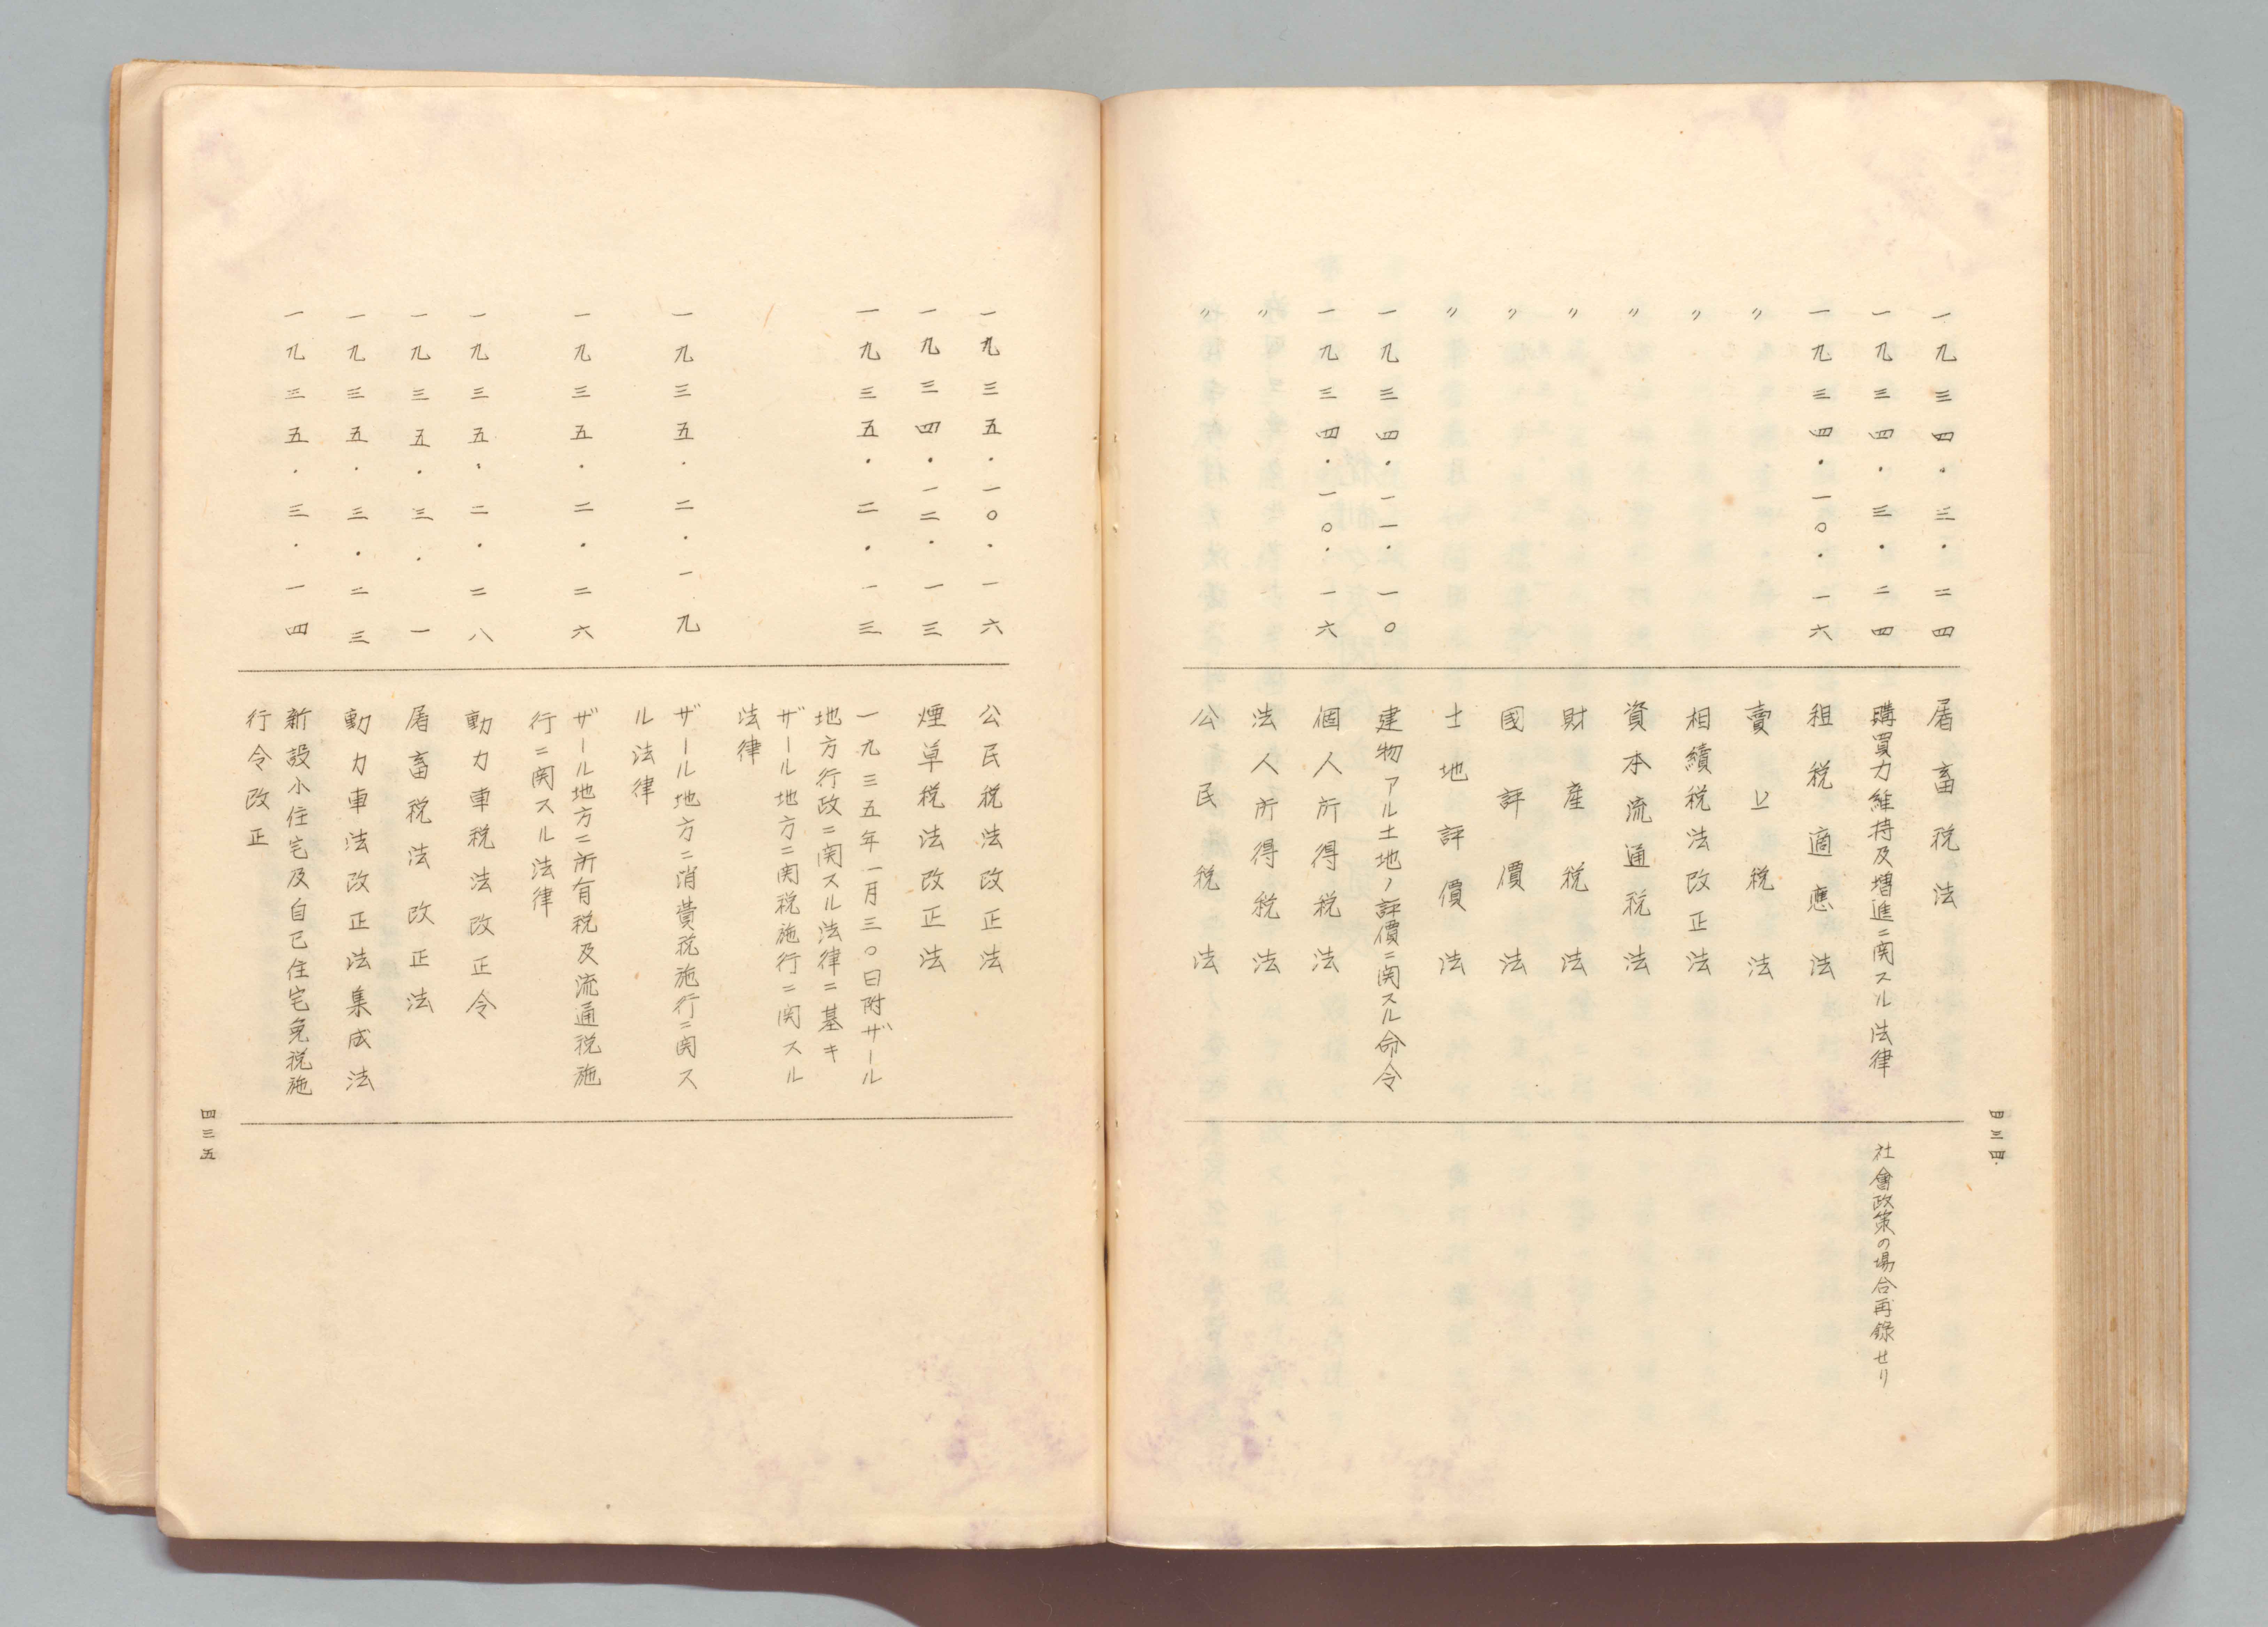 四三四
一九三四・三・二四 屠畜税法
一九三四・三・二四 購買力維持及増進ニ関スル法律 社會政策の場合再錄せり
一九三四・一〇・一六 租税適應法
〃 賣上税法
〃 相續税法改正法
〃 資本流通税法
〃 財産税法
〃 國評價法
〃 土地評價法
一九三四・一一・一〇 建物アル土地ノ評價ニ関スル命令
一九三四・一〇・一六 個人所得税法
〃 法人所得税法
〃 公民税法
一九三五・一〇・一六 公民税法改正法
一九三四・一二・一三 煙草税法改正法
一九三五・二・一三 一九三五年一月三〇日附ザール
地方行政ニ関スル法律ニ基キ
ザール地方ニ関税施行ニ関スル
法律
一九三五・二・一九 ザール地方ニ消費税施行ニ関ス
ル法律
一九三五・二・二六 ザール地方ニ所有税及流通税施
行ニ関スル法律
一九三五・二・二八 動力車税法改正令
一九三五・三・一 屠畜税法改正法
一九三五・三・二三 動力車法改正法集成法
一九三五・三・一四 新設小住宅及自己住宅免税施
行令改正
四三五